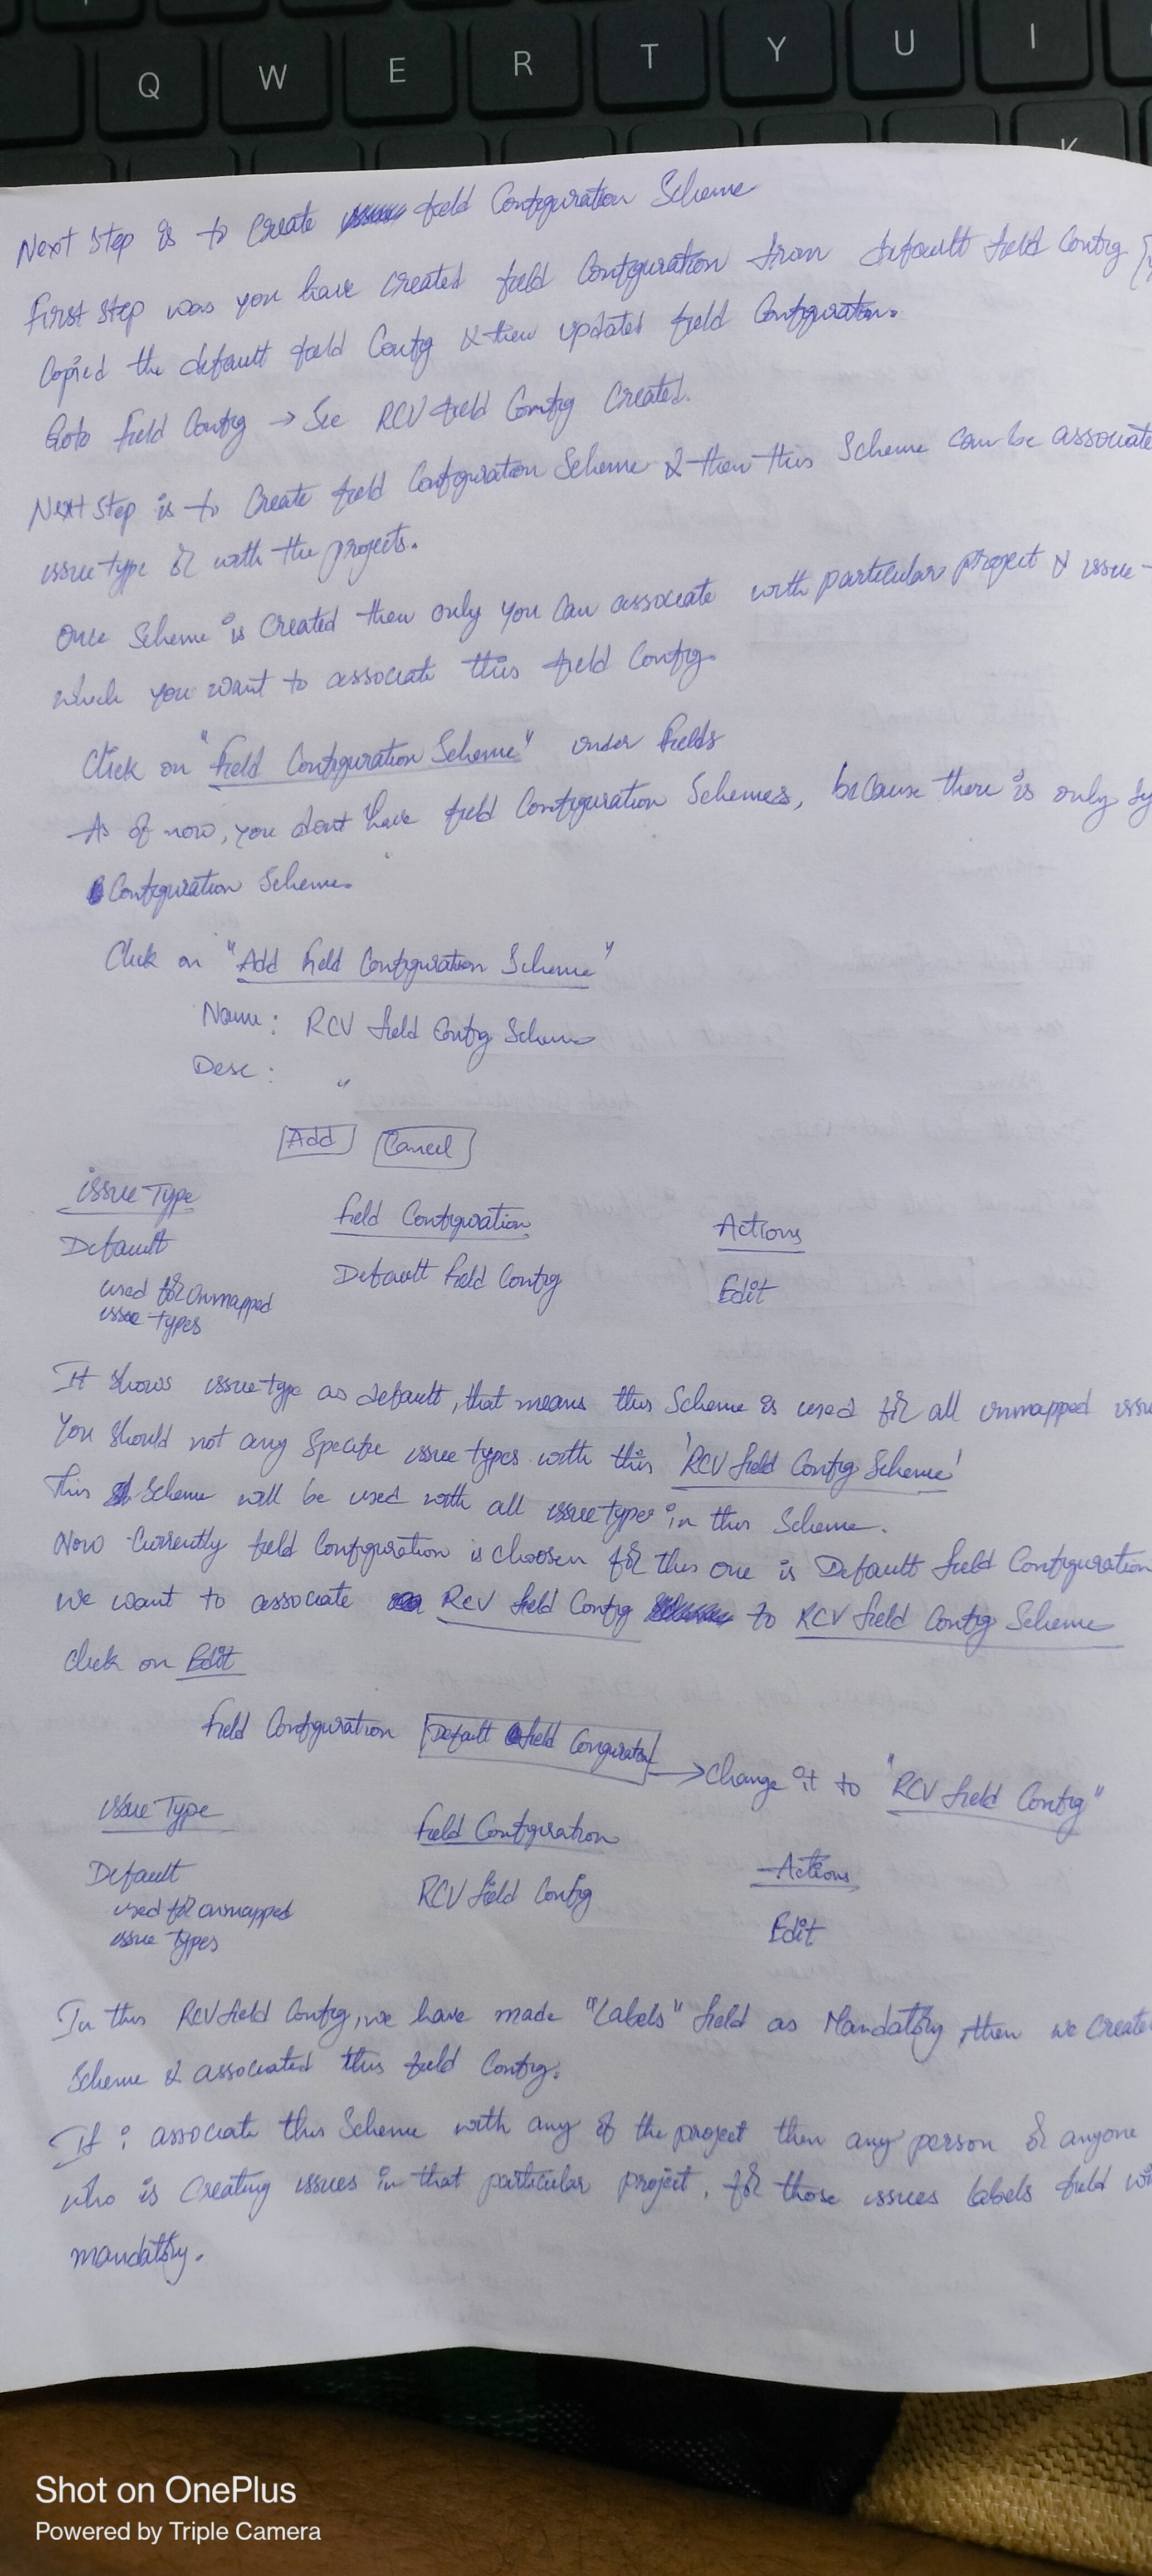 Q W E R T Y U I
K
Next step is to create field Configuration Scheme
First step was you have created field Configuration from default field Config
Copied the default field Config & then updated field Configuration.
Goto field Config → See RCV field Config Created.
Next step is to Create field Configuration Scheme & then this Scheme can be associate
issue type or with the projects.
Once Scheme is created then only you can associate with particular project & issue
which you want to associate this field Config.
Click on "field Configuration Scheme" under fields
As of now, you dont have field Configuration Schemes, because there is only sy
Configuration Scheme.
Click on "Add field Configuration Scheme"
Name: RCV field Config Scheme
Desc: "
Add Cancel
issue Type field Configuration Actions
Default Default field Config Edit
used for unmapped
issue types
It shows issue type as default, that means this Scheme is used for all unmapped issu
You should not any specific issue types with this 'RCV field Config Scheme'
This Scheme will be used with all issue types in this Scheme.
Now Currently field Configuration is choosen for this one is Default field Configuration
we want to associate RCV field Config to RCV field Config Scheme
click on Edit
field Configuration Default field Conguration → change it to "RCV field Config"
issue Type field Configuration Actions
Default RCV field Config Edit
used for unmapped
issue types
In this RCV field Config, we have made "Labels" field as Mandatory, then we create
Scheme & associated this field Config.
If i associate this Scheme with any of the project then any person or anyone
who is creating issues in that particular project, for those issues labels field wi
mandatory.
Shot on OnePlus
Powered by Triple Camera